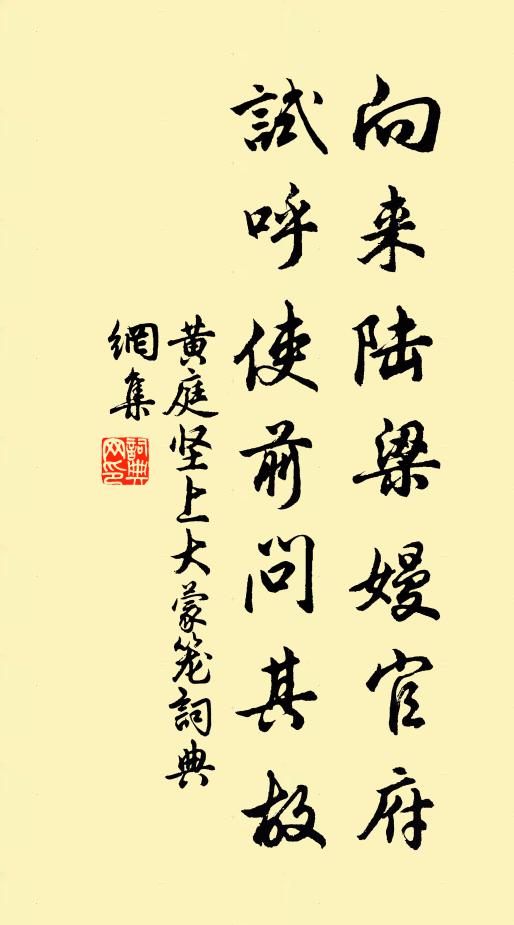 向来陆梁嫚官府
試呼使前問其故
黄庭坚上大蒙笼詞典
網集
詞典
网印